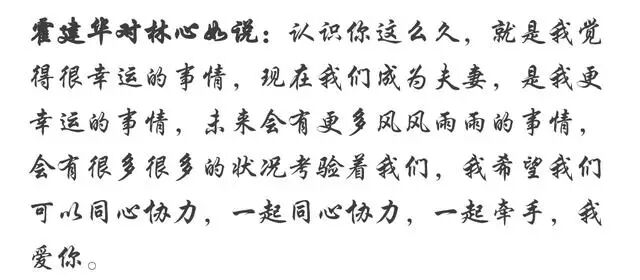 霍建华对林心如说：认识你这么久，就是我觉
得很幸运的事情，现在我们成为夫妻，是我更
幸运的事情，未来会有更多风风雨雨的事情，
会有很多很多的状况考验着我们，我希望我们
可以同心协力，一起同心协力，一起牵手，我
爱你。